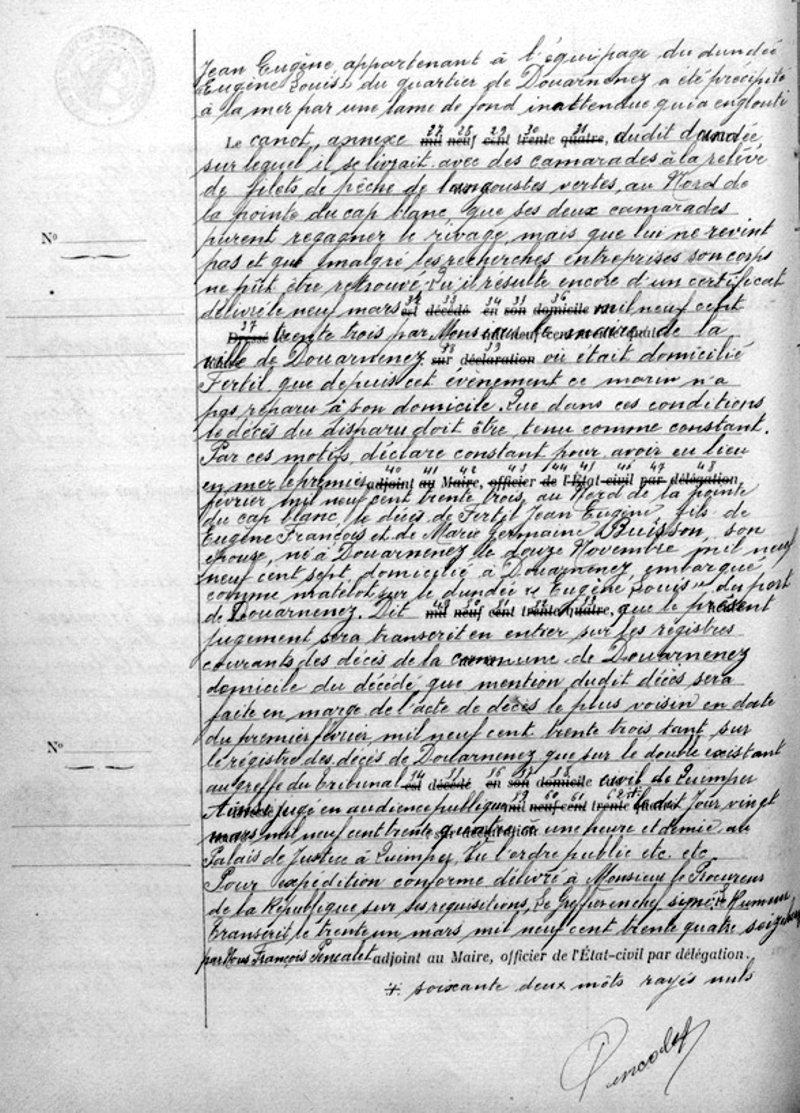 Jean Eugène, appartenant à l'équipage du dundée
"Eugène Louis" du quartier de Douarnenez a été précipité
à la mer par une lame de fond inattendue qui a englouti
Le canot, annexe 27 mil 28 neuf 29 cent 30 trente 31 quatre, dudit dundée
sur lequel il se livrait avec des camarades à la relève
de filets de pêche de langoustes vertes, au Nord de
la pointe du cap blanc, que ses deux camarades
N° purent regagner le rivage, mais que lui ne revint
pas et que malgré les recherches entreprises son corps
ne pût être retrouvé. Qu'il résulte encore d'un certificat
délivré le neuf mars 32 est 33 décédé 34 en 35 son 36 domicile mil neuf cent
37 Dressé trente trois par Monsieur le maire de la
ville de Douarnenez 38 sur 39 déclaration où était domicilié
Fertil que depuis cet évènement ce marin n'a
pas reparu à son domicile. Que dans ces conditions
le décès du disparu doit être tenu comme constant.
Par ces motifs, déclare constant pour avoir eu lieu
en mer le premier 40 adjoint 41 au 42 Maire, 43 officier 44 de l'État-civil 46 47 par 48 délégation,
février mil neuf cent trente trois, au Nord de la pointe
du cap blanc, le décès de Fertil Jean Eugène, fils de
Eugène François et de Marie Germaine Buisson, son
épouse, né à Douarnenez le douze Novembre mil neuf
neuf cent sept, domicilié à Douarnenez embarqué
comme matelot sur le dundée "Eugène Louis" du port
de Douarnenez. Dit mil neuf cent trente quatre, que le présent
jugement sera transcrit en entier sur les registres
courants des décès de la commune de Douarnenez
domicile du décédé, que mention dudit décès sera
faite en marge de l'acte de décès le plus voisin en date
du premier février mil neuf cent trente trois tant sur
N° le régistre des décès de Douarnenez que sur le double existant
au greffe du tribunal 54 est 55 décédé 56 en 57 son 58 domicile civil de Quimper
Ainsi jugé en audience publique mil neuf cent trente ledit jour vingt
mars mil neuf cent trente quatre à une heure et demie au
Palais de Justice à Quimper. Vu l'ordre public etc. etc.
Pour expédition conforme délivré à Monsieur le Procureur
de la République sur ses requisitions, Le Greffier en chef signé: Le Rumeur
Transcrit le trente un mars mil neuf cent trente quatre seize heures
par Nous François Pencalet adjoint au Maire, officier de l'État-civil par délégation.
+ soixante deux môts rayés nuls
Pencalet